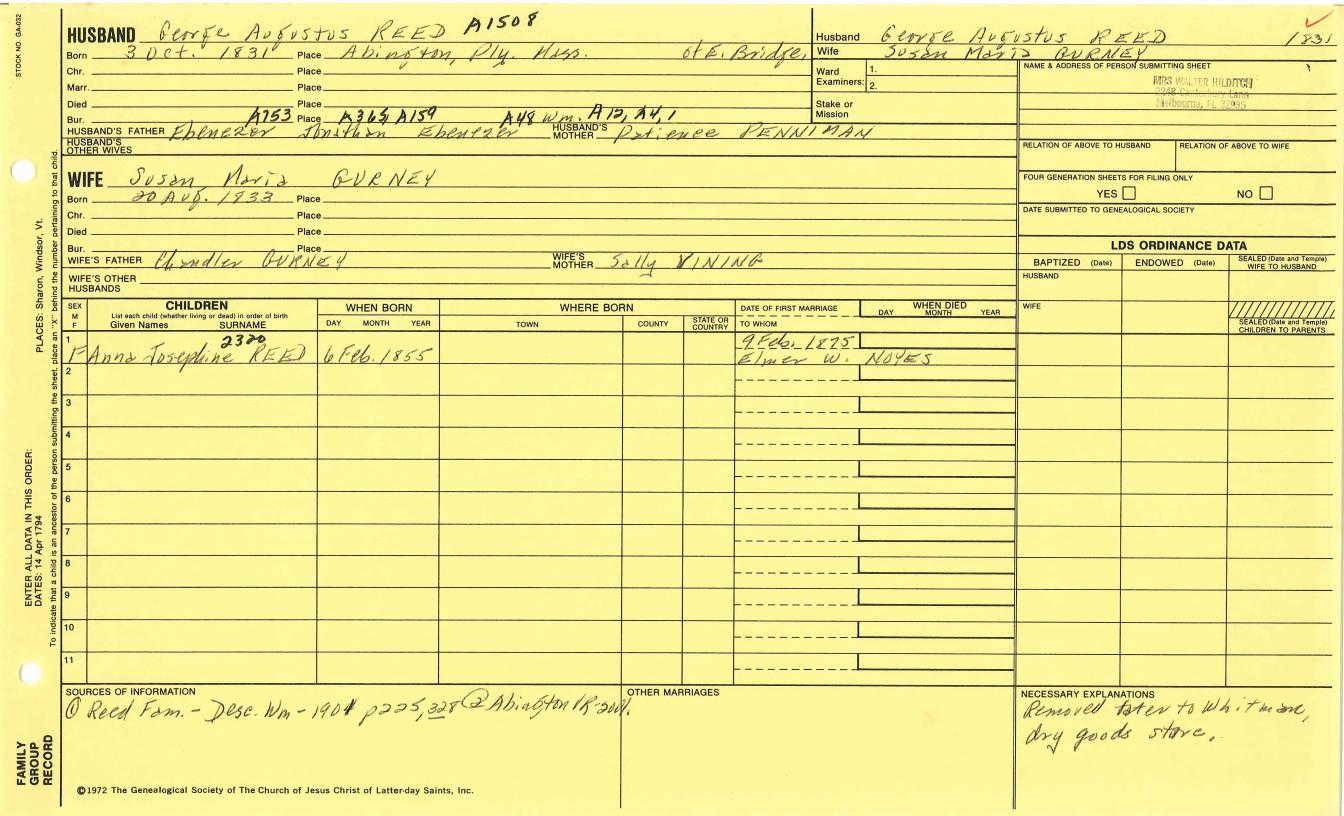 STOCK NO. GA-032
HUSBAND George Augustus REED A1508
Born 3 Oct. 1831 Place Abington, Ply. Mass. of E. Bridge.
Chr. Place
Marr. Place
Died Place
A753 A365, A159 A48 Wm. A12, A4, 1
Bur. Place
HUSBAND'S FATHER Ebenezer Jonathan Ebenezer HUSBAND'S MOTHER Patience PENNIMAN
HUSBAND'S OTHER WIVES
Husband George Augustus REED 1831
Wife Susan Maria GURNEY
Ward Examiners: 1.
2.
Stake or Mission
NAME & ADDRESS OF PERSON SUBMITTING SHEET
MRS WALTER HILDITCH
Melbourne, FL
RELATION OF ABOVE TO HUSBAND RELATION OF ABOVE TO WIFE
FOUR GENERATION SHEETS FOR FILING ONLY
YES NO
DATE SUBMITTED TO GENEALOGICAL SOCIETY
WIFE Susan Maria GURNEY
Born 20 Aug. 1833 Place
Chr. Place
Died Place
Bur. Place
WIFE'S FATHER Chandler GURNEY WIFE'S MOTHER Sally VINING
WIFE'S OTHER HUSBANDS
LDS ORDINANCE DATA
BAPTIZED (Date) ENDOWED (Date) SEALED (Date and Temple) WIFE TO HUSBAND
HUSBAND
WIFE
SEALED (Date and Temple) CHILDREN TO PARENTS
SEX M F
CHILDREN
List each child (whether living or dead) in order of birth
Given Names SURNAME
WHEN BORN
DAY MONTH YEAR
WHERE BORN
TOWN COUNTY STATE OR COUNTRY
DATE OF FIRST MARRIAGE
TO WHOM
WHEN DIED
DAY MONTH YEAR
1
2320 9 Feb. 1875
F Anna Josephine REED 6 Feb. 1855 Elmer W. NOYES
2
3
4
5
6
7
8
9
10
11
SOURCES OF INFORMATION
① Reed Fam. - Desc. Wm - 1901 p 225, 328 ② Abington VR-200.
OTHER MARRIAGES
NECESSARY EXPLANATIONS
Removed later to Whitman,
dry goods store.
©1972 The Genealogical Society of The Church of Jesus Christ of Latter-day Saints, Inc.
FAMILY GROUP RECORD
ENTER ALL DATA IN THIS ORDER:
DATES: 14 Apr 1794
PLACES: Sharon, Windsor, Vt.
To indicate that a child is an ancestor of the person submitting the sheet, place an "X" behind the number pertaining to that child.